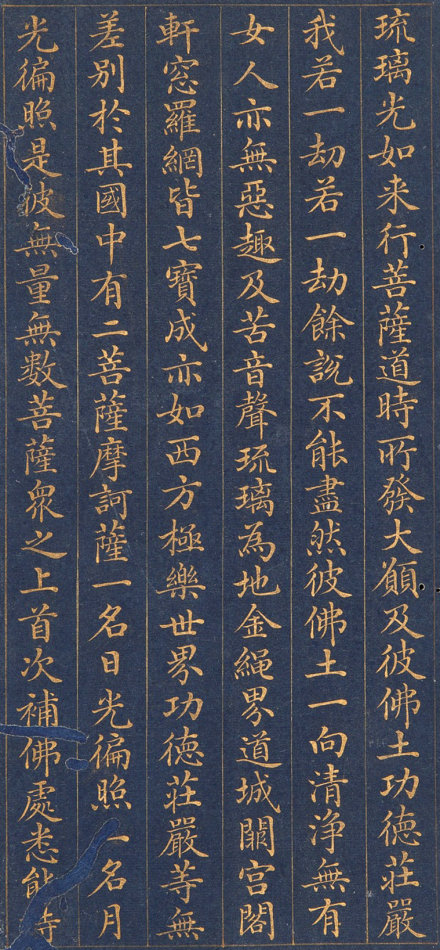 琉璃光如来行菩薩道時所發大願及彼佛土功德莊嚴
我若一劫若一劫餘説不能盡然彼佛土一向清淨無有
女人亦無惡趣及苦音聲琉璃為地金繩界道城闕宫閣
軒窓羅網皆七寳成亦如西方極樂世界功德莊嚴等無
差别於其國中有二菩薩摩訶薩一名日光徧照一名月
光徧照是彼無量無數菩薩衆之上首次補佛處悉能持